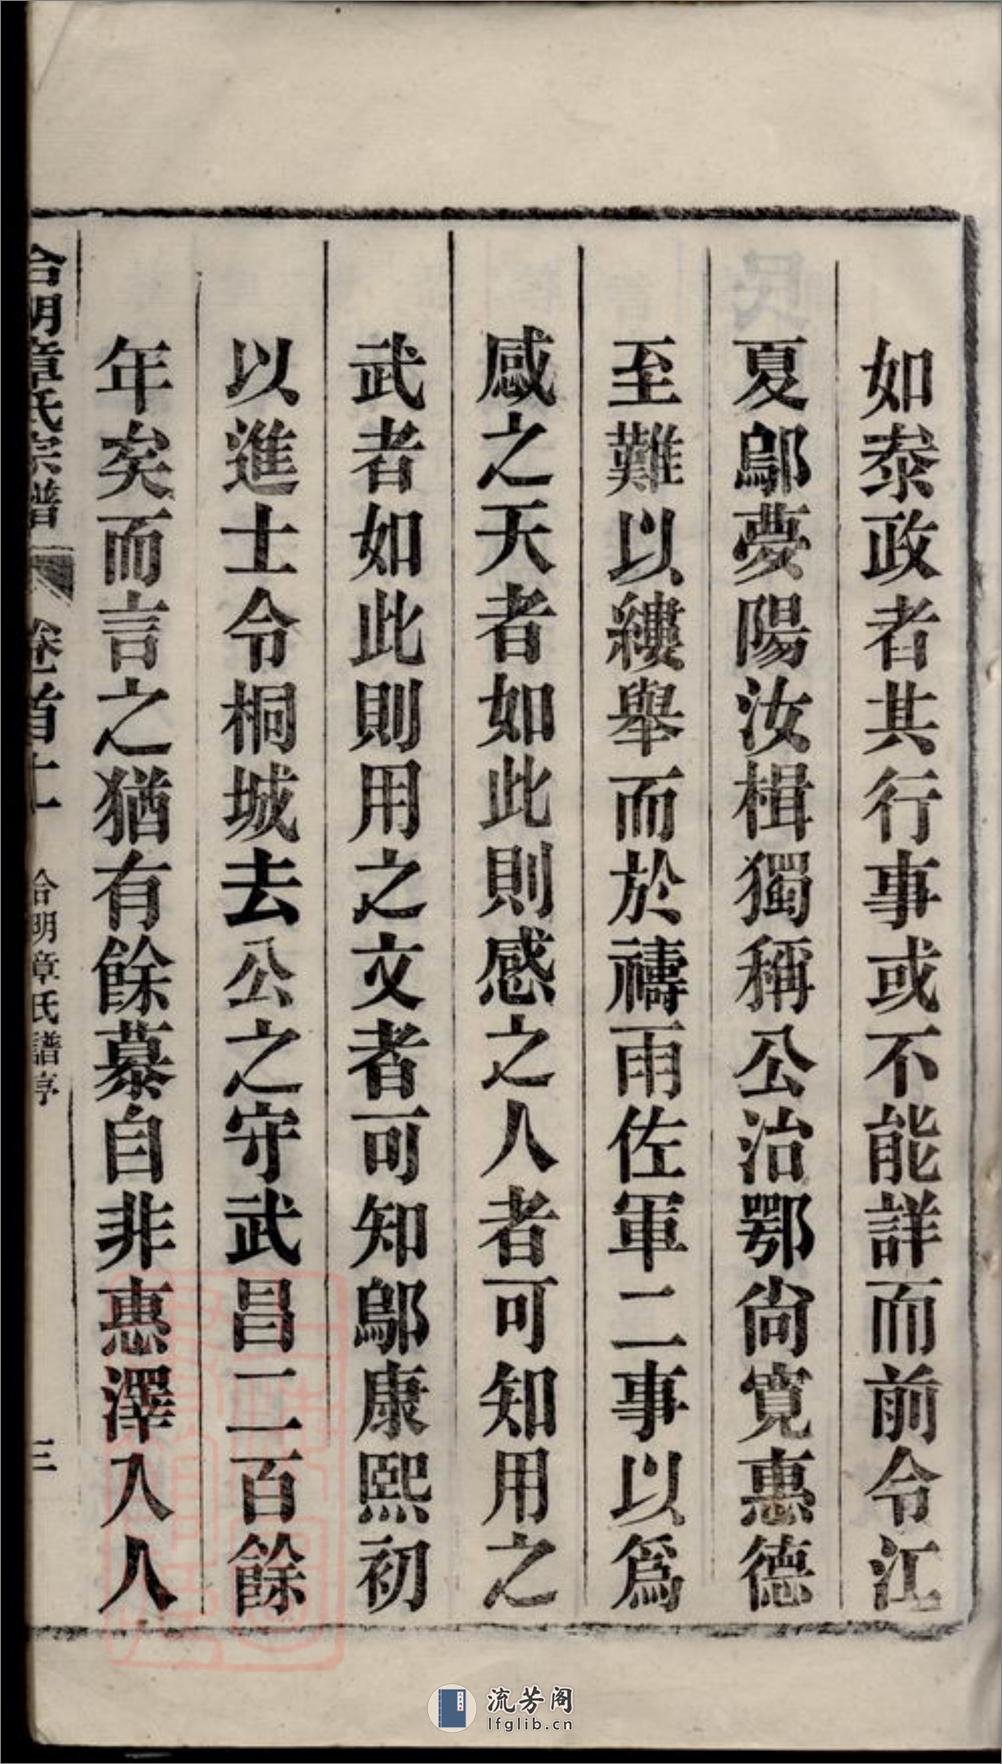 如泰政者其行事或不能詳而前令江
夏鄔夢陽汝楫獨稱公治鄂尙寬惠德
至難以縷舉而於禱雨佐軍二事以爲
感之天者如此則感之人者可知用之
武者如此則用之文者可知鄔康熙初
以進士令桐城去公之守武昌二百餘
年矣而言之猶有餘慕自非惠澤入人
合明章氏宗譜
卷首上
合明章氏譜序
三
流芳阁
lfglib.cn